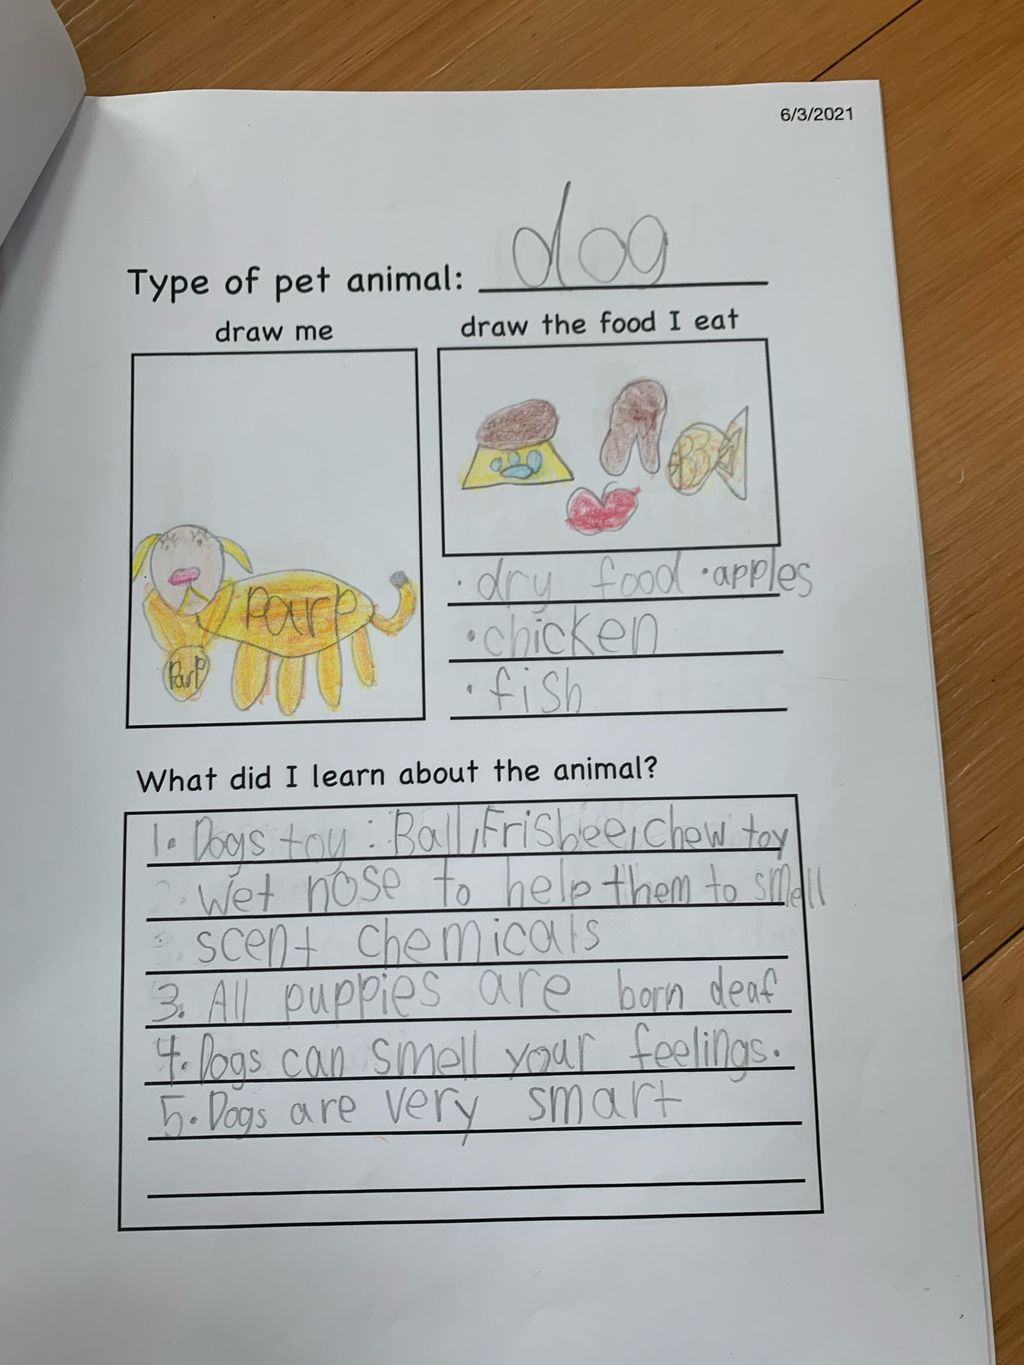 6/3/2021
Type of pet animal: dog
draw me
draw the food I eat
Parp
Parp
· dry food · apples
· chicken
· fish
What did I learn about the animal?
1. Dogs toy : Ball, Frisbee, Chew toy
2. Wet nose to help them to smell
scent chemicals
3. All puppies are born deaf
4. Dogs can smell your feelings.
5. Dogs are very smart